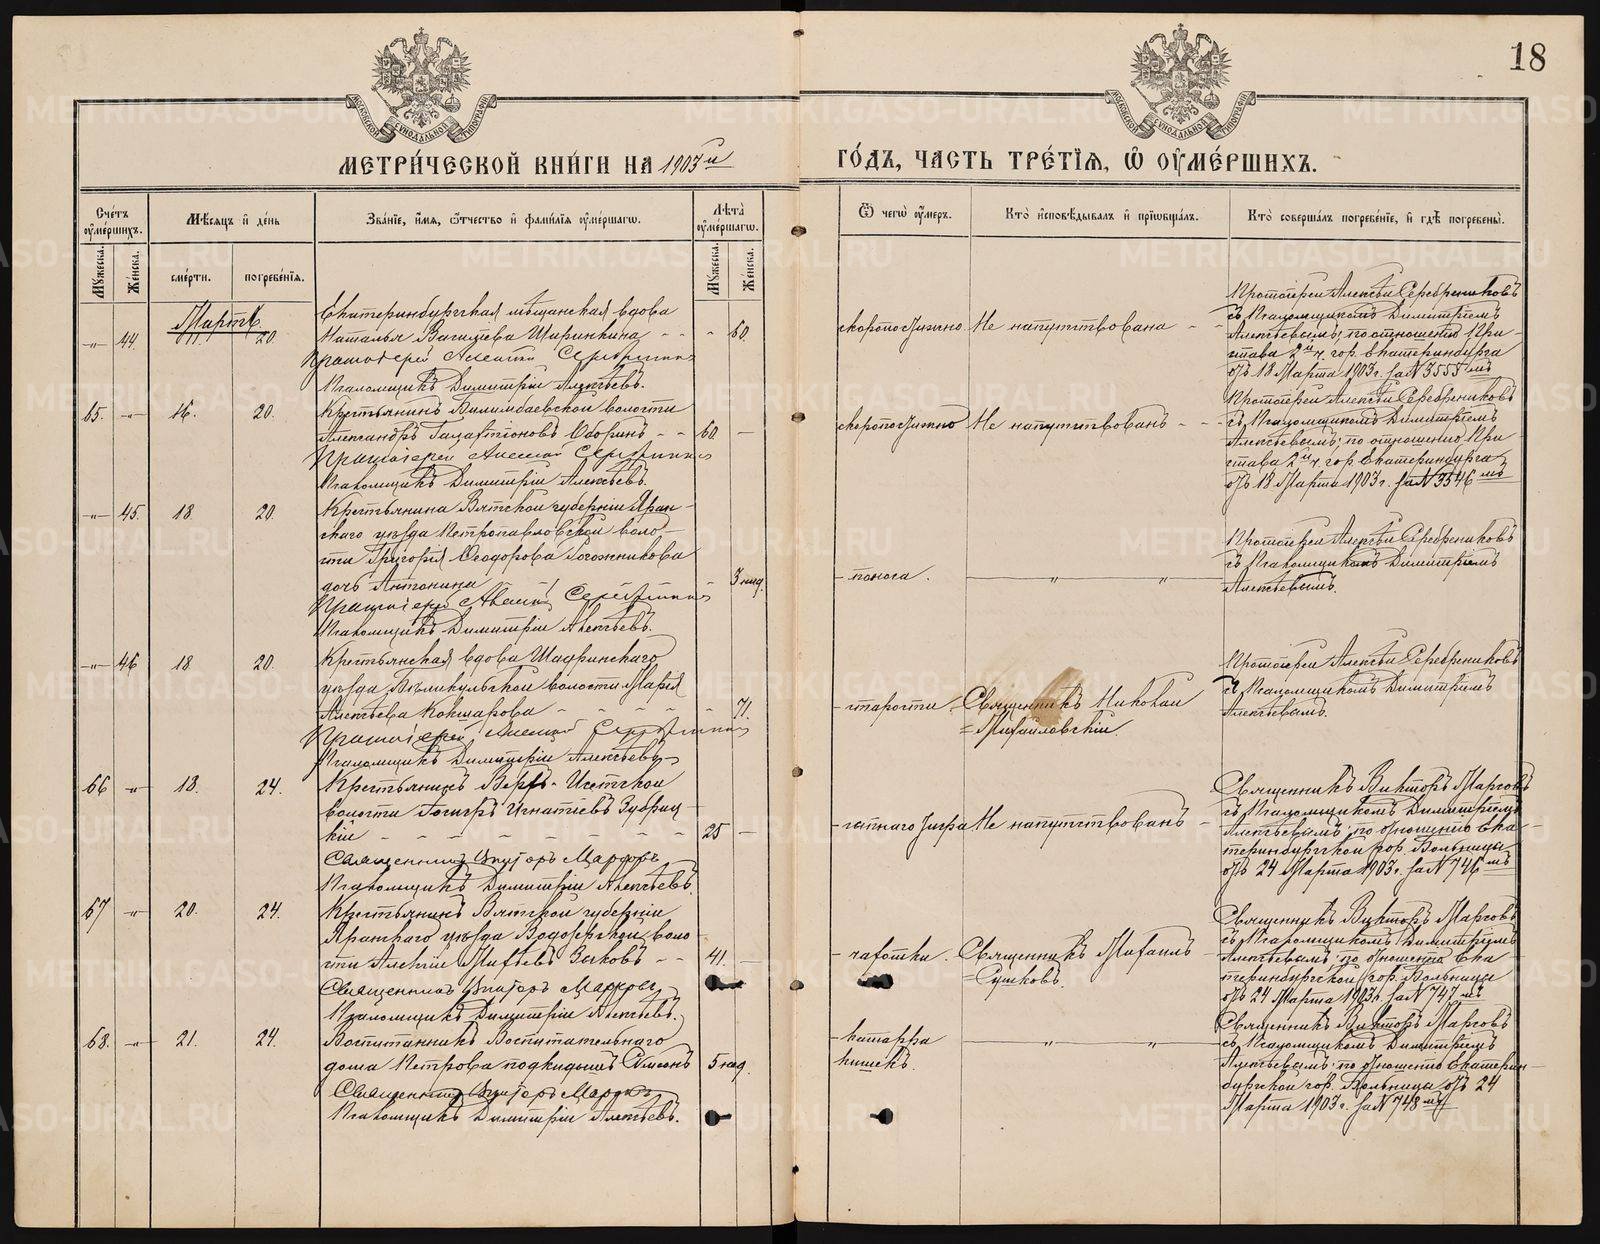 18
МОСКОВСКОЙ СѴНОДАЛЬНОЙ ТИПОГРАФІИ
МОСКОВСКОЙ СѴНОДАЛЬНОЙ ТИПОГРАФІИ
МЕТРИ́ЧЕСКОЙ КНИ́ГИ НА 1903й
ГО́ДЪ, ЧАСТЬ ТРЕ́ТІѦ, Ѡ҆ ОУ҆МЕ́РШИХЪ.
Сче́тъ оу҆ме́ршихъ.
Мѣ́сѧцъ и҆ де́нь
Зва́нїе, и҆́мѧ, ѻ҆́тчество и҆ фами́лїѧ оу҆ме́ршагѡ.
Лѣ́та оу҆ме́ршагѡ.
Ѿ чегѡ̀ оу҆́меръ.
Кто̀ и҆сповѣ́дывалъ и҆ прїѡбща́лъ.
Кто̀ соверша́лъ погребе́нїе, и҆ гдѣ̀ погребены̀.
Мꙋ́жеска.
Же́нска.
сме́рти.
погребе́нїѧ.
Мꙋ́жеска.
Же́нска.
Мартъ
Екатеринбургская мѣщанская вдова
-„- 44. 20. Наталья Ширинкина - - - 60.
Протоіерей Алексѣй Серебрениковъ
Псаломщикъ Димитрій Алексѣевъ.
скоропостижно Не напутствована - -
Протоіерей Алексѣй Серебрениковъ
съ Псаломщикомъ Димитріемъ
Алексѣевымъ; по отношенію При-
става 2й ч. гор. Екатеринбурга
отъ 18 Марта 1903 г. за № 3555мъ
65. -„- 16. 20. Крестьянинъ Билимбаевской волости
Александръ Оборинъ - - 60. -
Протоіерей Алексѣй Серебрениковъ
Псаломщикъ Димитрій Алексѣевъ.
скоропостижно Не напутствованъ - -
Протоіерей Алексѣй Серебрениковъ
съ Псаломщикомъ Димитріемъ
Алексѣевымъ; по отношенію При-
става 2й ч. гор. Екатеринбурга
отъ 18 Марта 1903 г. за № 3546мъ
-„- 45. 18. 20. Крестьянина Вятской губерніи Яран-
скаго уѣзда Петропавловской воло-
сти Григорія Ѳеодорова Рогожникова
дочь Антонина - 3 нед.
Протоіерей Алексѣй Серебрениковъ
Псаломщикъ Димитрій Алексѣевъ.
- поноса. -„- -„-
Протоіерей Алексѣй Серебрениковъ
съ Псаломщикомъ Димитріемъ
Алексѣевымъ.
-„- 46 18 20. Крестьянская вдова Шадринскаго
уѣзда волости Марѳа
Алексѣева Кокшарова - - - - - 71.
Протоіерей Алексѣй Серебрениковъ
Псаломщикъ Димитрій Алексѣевъ
- старости. Священникъ Николай
= Михайловскій.
Протоіерей Алексѣй Серебрениковъ
съ Псаломщикомъ Димитріемъ
Алексѣевымъ.
66 -„- 18. 24. Крестьянинъ Верхъ-Исетской
волости Игнатіевъ Зубриц-
кій - - - - - - - 25 -
Священникъ Викторъ Марковъ
Псаломщикъ Димитрій Алексѣевъ.
Не напутствованъ -
Священникъ Викторъ Марковъ
съ Псаломщикомъ Димитріемъ
Алексѣевымъ; по отношенію Ека-
теринбургской гор. Больницы
отъ 24 Марта 1903 г. за № 746мъ
67 -„- 20. 24. Крестьянинъ Вятской губерніи
Яранскаго уѣзда воло-
сти Алексій Зыковъ - - 41. -
Священникъ Викторъ Марковъ
Псаломщикъ Димитрій Алексѣевъ.
- чахотки. Священникъ Михаилъ
= Сушковъ.
Священникъ Викторъ Марковъ
съ Псаломщикомъ Димитріемъ
Алексѣевымъ; по отношенію Ека-
теринбургской гор. Больницы
отъ 24 Марта 1903 г. за № 747мъ
68. -„- 21. 24. Воспитанникъ Воспитательнаго
дома Петрова подкидышъ Симеонъ 5 нед.
Священникъ Викторъ Марковъ
Псаломщикъ Димитрій Алексѣевъ.
- катарра
кишекъ. -„- -„-
Священникъ Викторъ Марковъ
съ Псаломщикомъ Димитріемъ
Алексѣевымъ; по отношенію Екатерин-
бургской гор. Больницы отъ 24
Марта 1903 г. за № 748мъ
METRIKI.GASO-URAL.RU